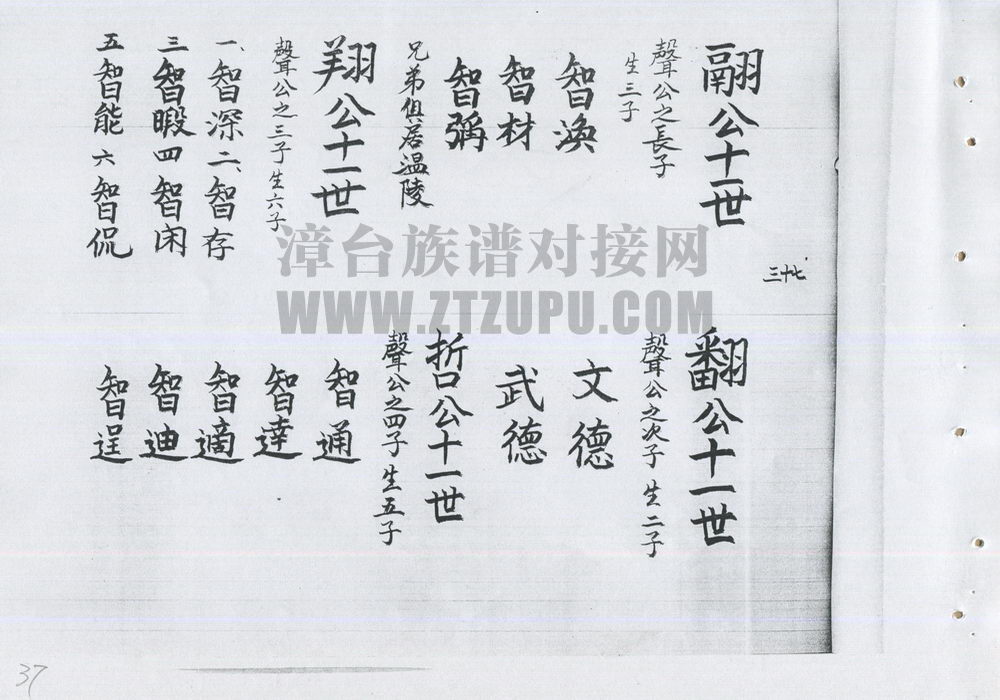 翮公十一世
聲公之長子
生三子
智渙
智材
智𢐀
兄弟俱居温陵
翔公十一世
聲公之三子生六子
一、智深二、智存
三智暇四智闲
五智能六智侃
三十七
翻公十一世
聲公之次子生二子
文德
武德
哲公十一世
聲公之四子生五子
智通
智達
智適
智迪
智逞
漳台族谱对接网
WWW.ZTZUPU.COM
37